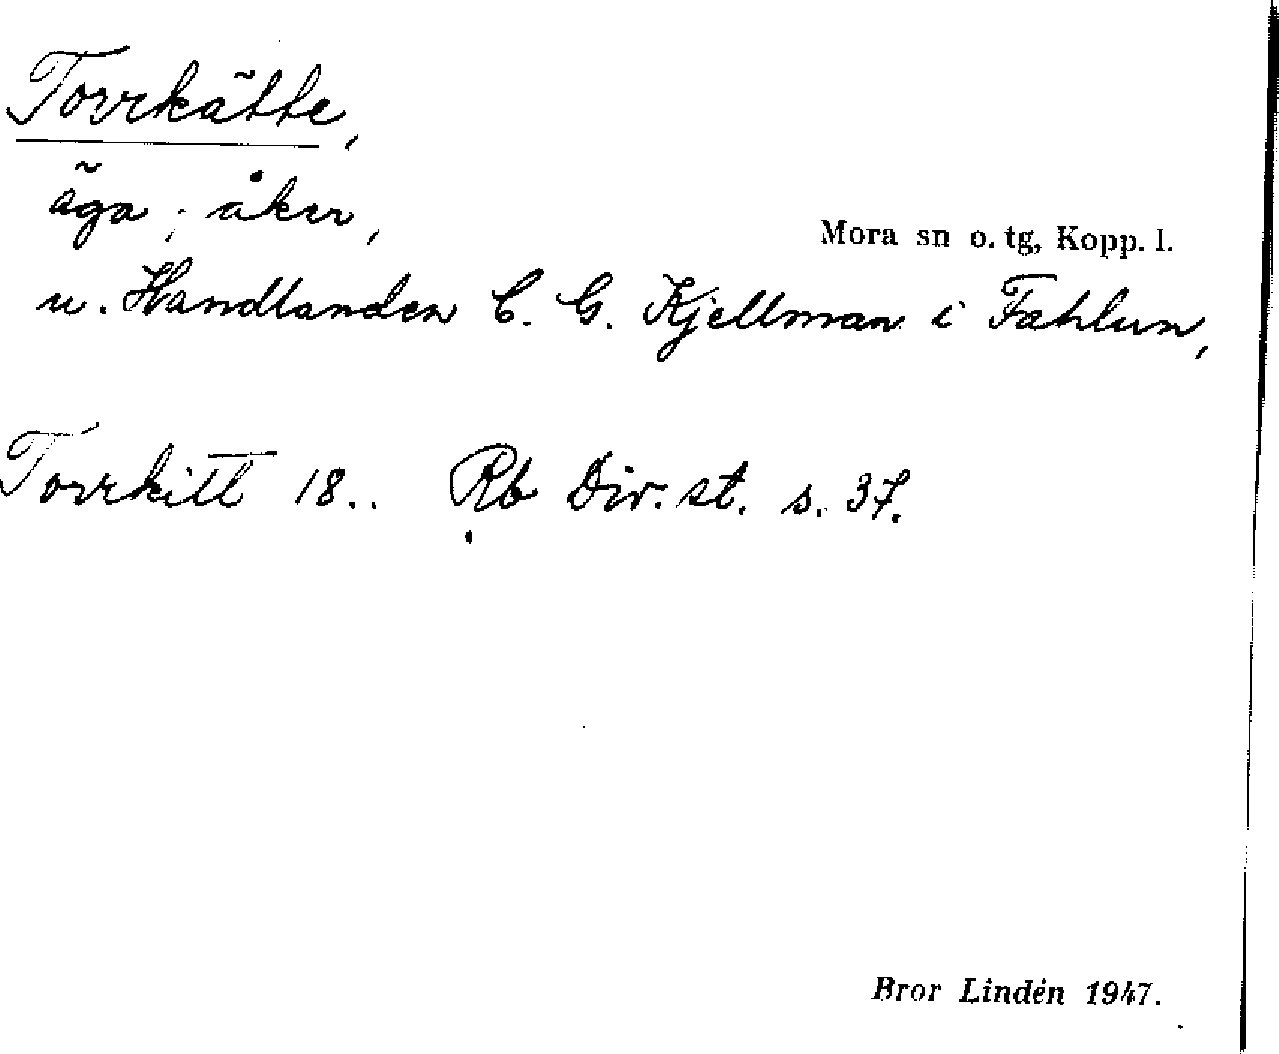 Torrkätte,
äga; åker,
Mora sn o. tg, Kopp. l.
u. Handlanden C. G. Kjellman i Fahlun,
Torrkitt 18.. Rb Div. st. s. 37.
Bror Lindén 1947.